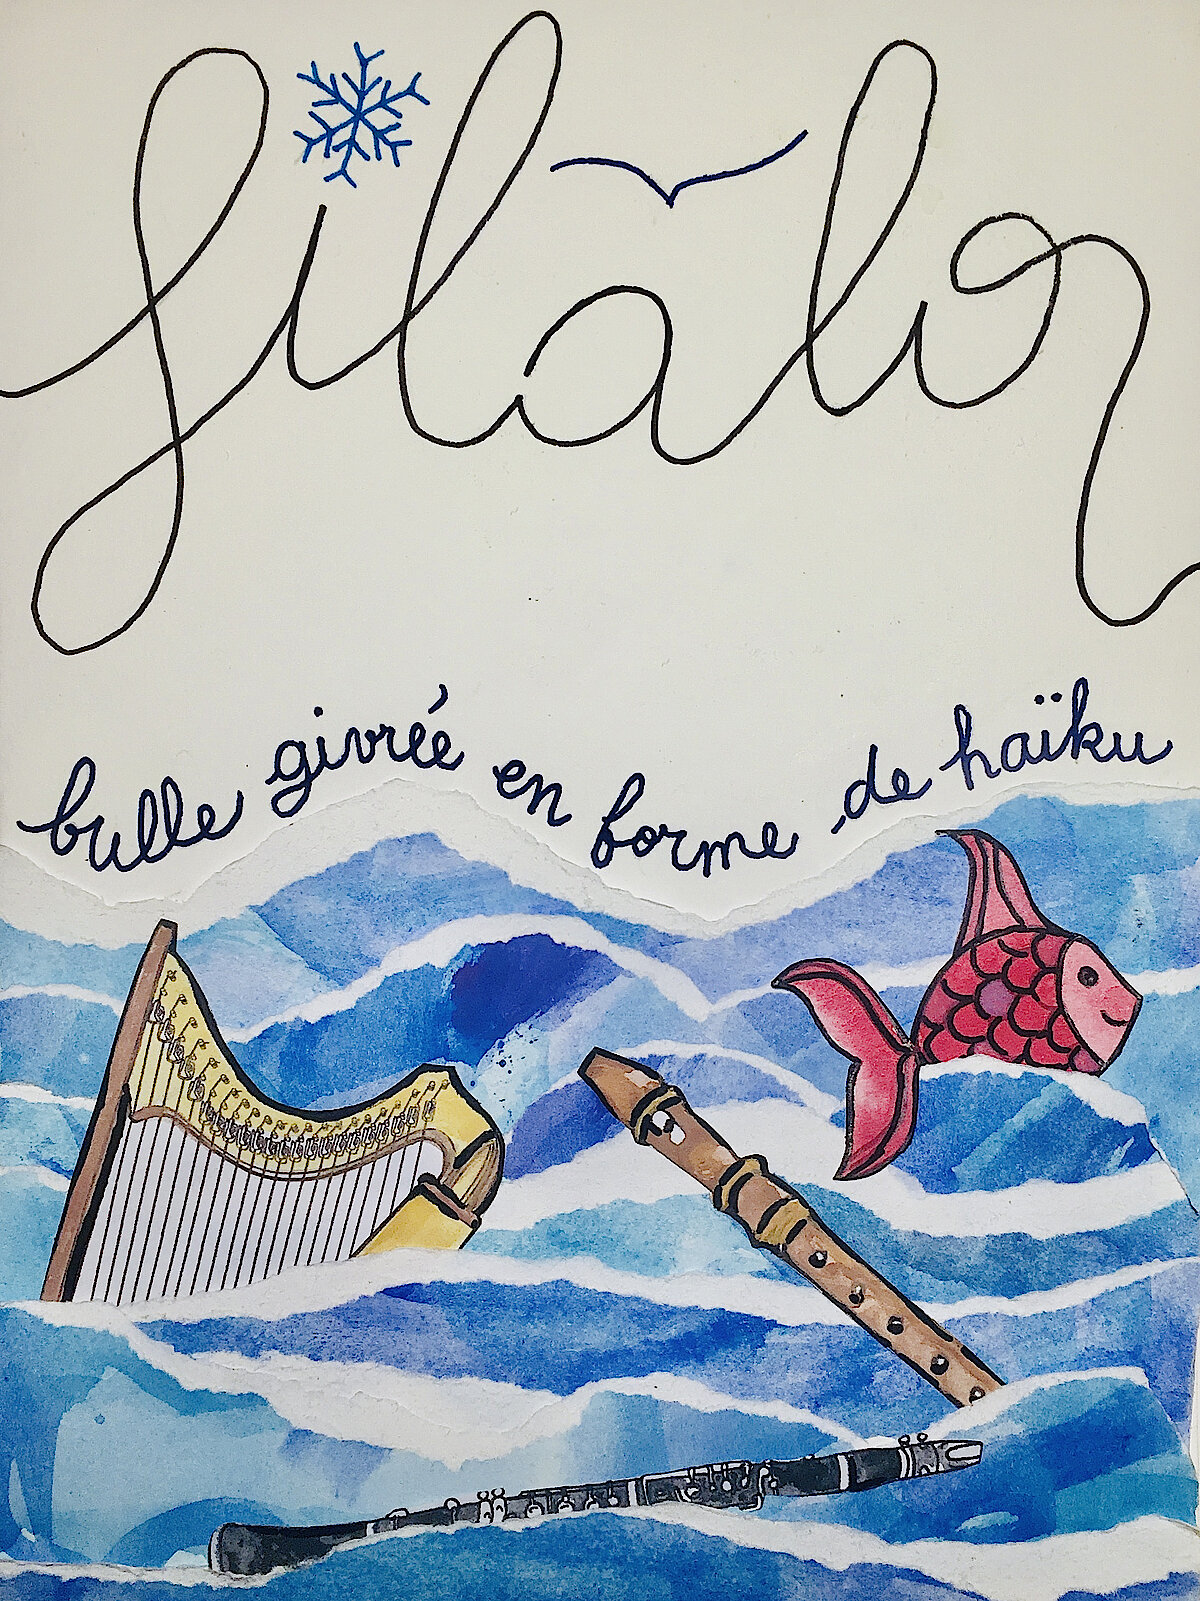 filalo
bulle givrée en forme de haïku